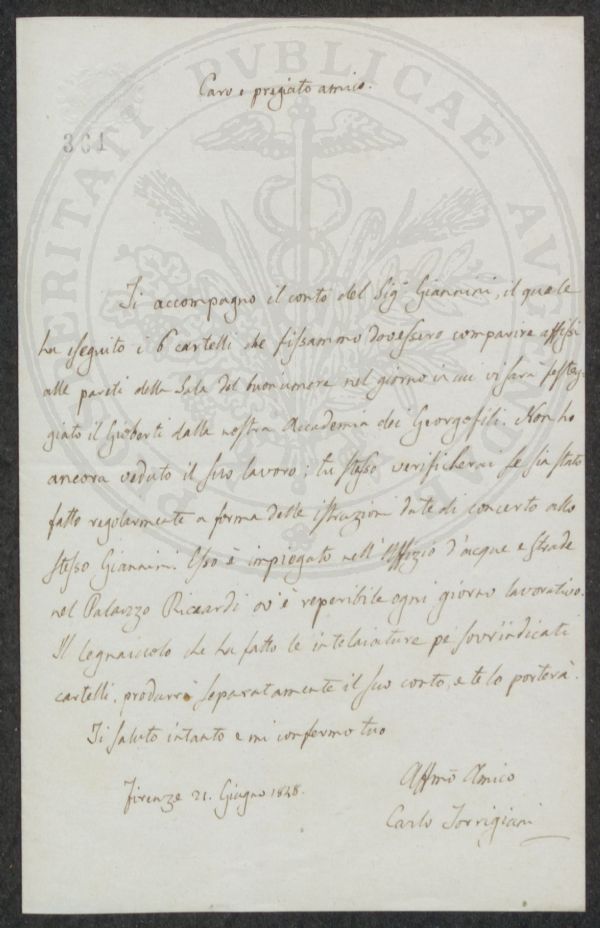 PROSPERITATI PVBLICAE AVGENDAE
Caro e pregiato amico.
361
Ti accompagno il conto del Sigr Giannini, il quale
ha eseguito i 6 cartelli che fissammo dovessero comparire affissi
alle pareti della Sala del buonumore nel giorno in cui vi sara festeg¬
giato il Gioberti dalla nostra Accademia dei Georgofili. Non ho
ancora veduto il suo lavoro; tu stesso verificherai se sia stato
fatto regolarmente a forma delle istruzioni date di concerto allo
stesso Giannini. Esso è impiegato nell'Offizio d'acque e strade
nel Palazzo Riccardi ov'è reperibile ogni giorno lavorativo.
Il legnaiolo che ha fatto le intelaiature pe' sovr'indicati
cartelli, produrrà separatamente il suo conto, e te lo porterà.
Ti saluto intanto e mi confermo tuo
Firenze 21. Giugno 1848.
Affmo Amico
Carlo Torrigiani